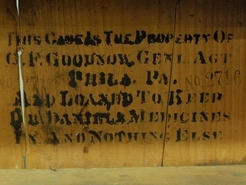 THIS CASE IS THE PROPERTY OF
C.F. GOODNOW, GENL. AGT
PHILA. PA.
AND LOANED TO KEEP
DR. DANIELS MEDICINES
IN AND NOTHING ELSE